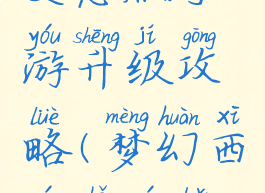 yóu shēng jí gōng
游升级攻
lüè mèng huàn xī
略(梦幻西